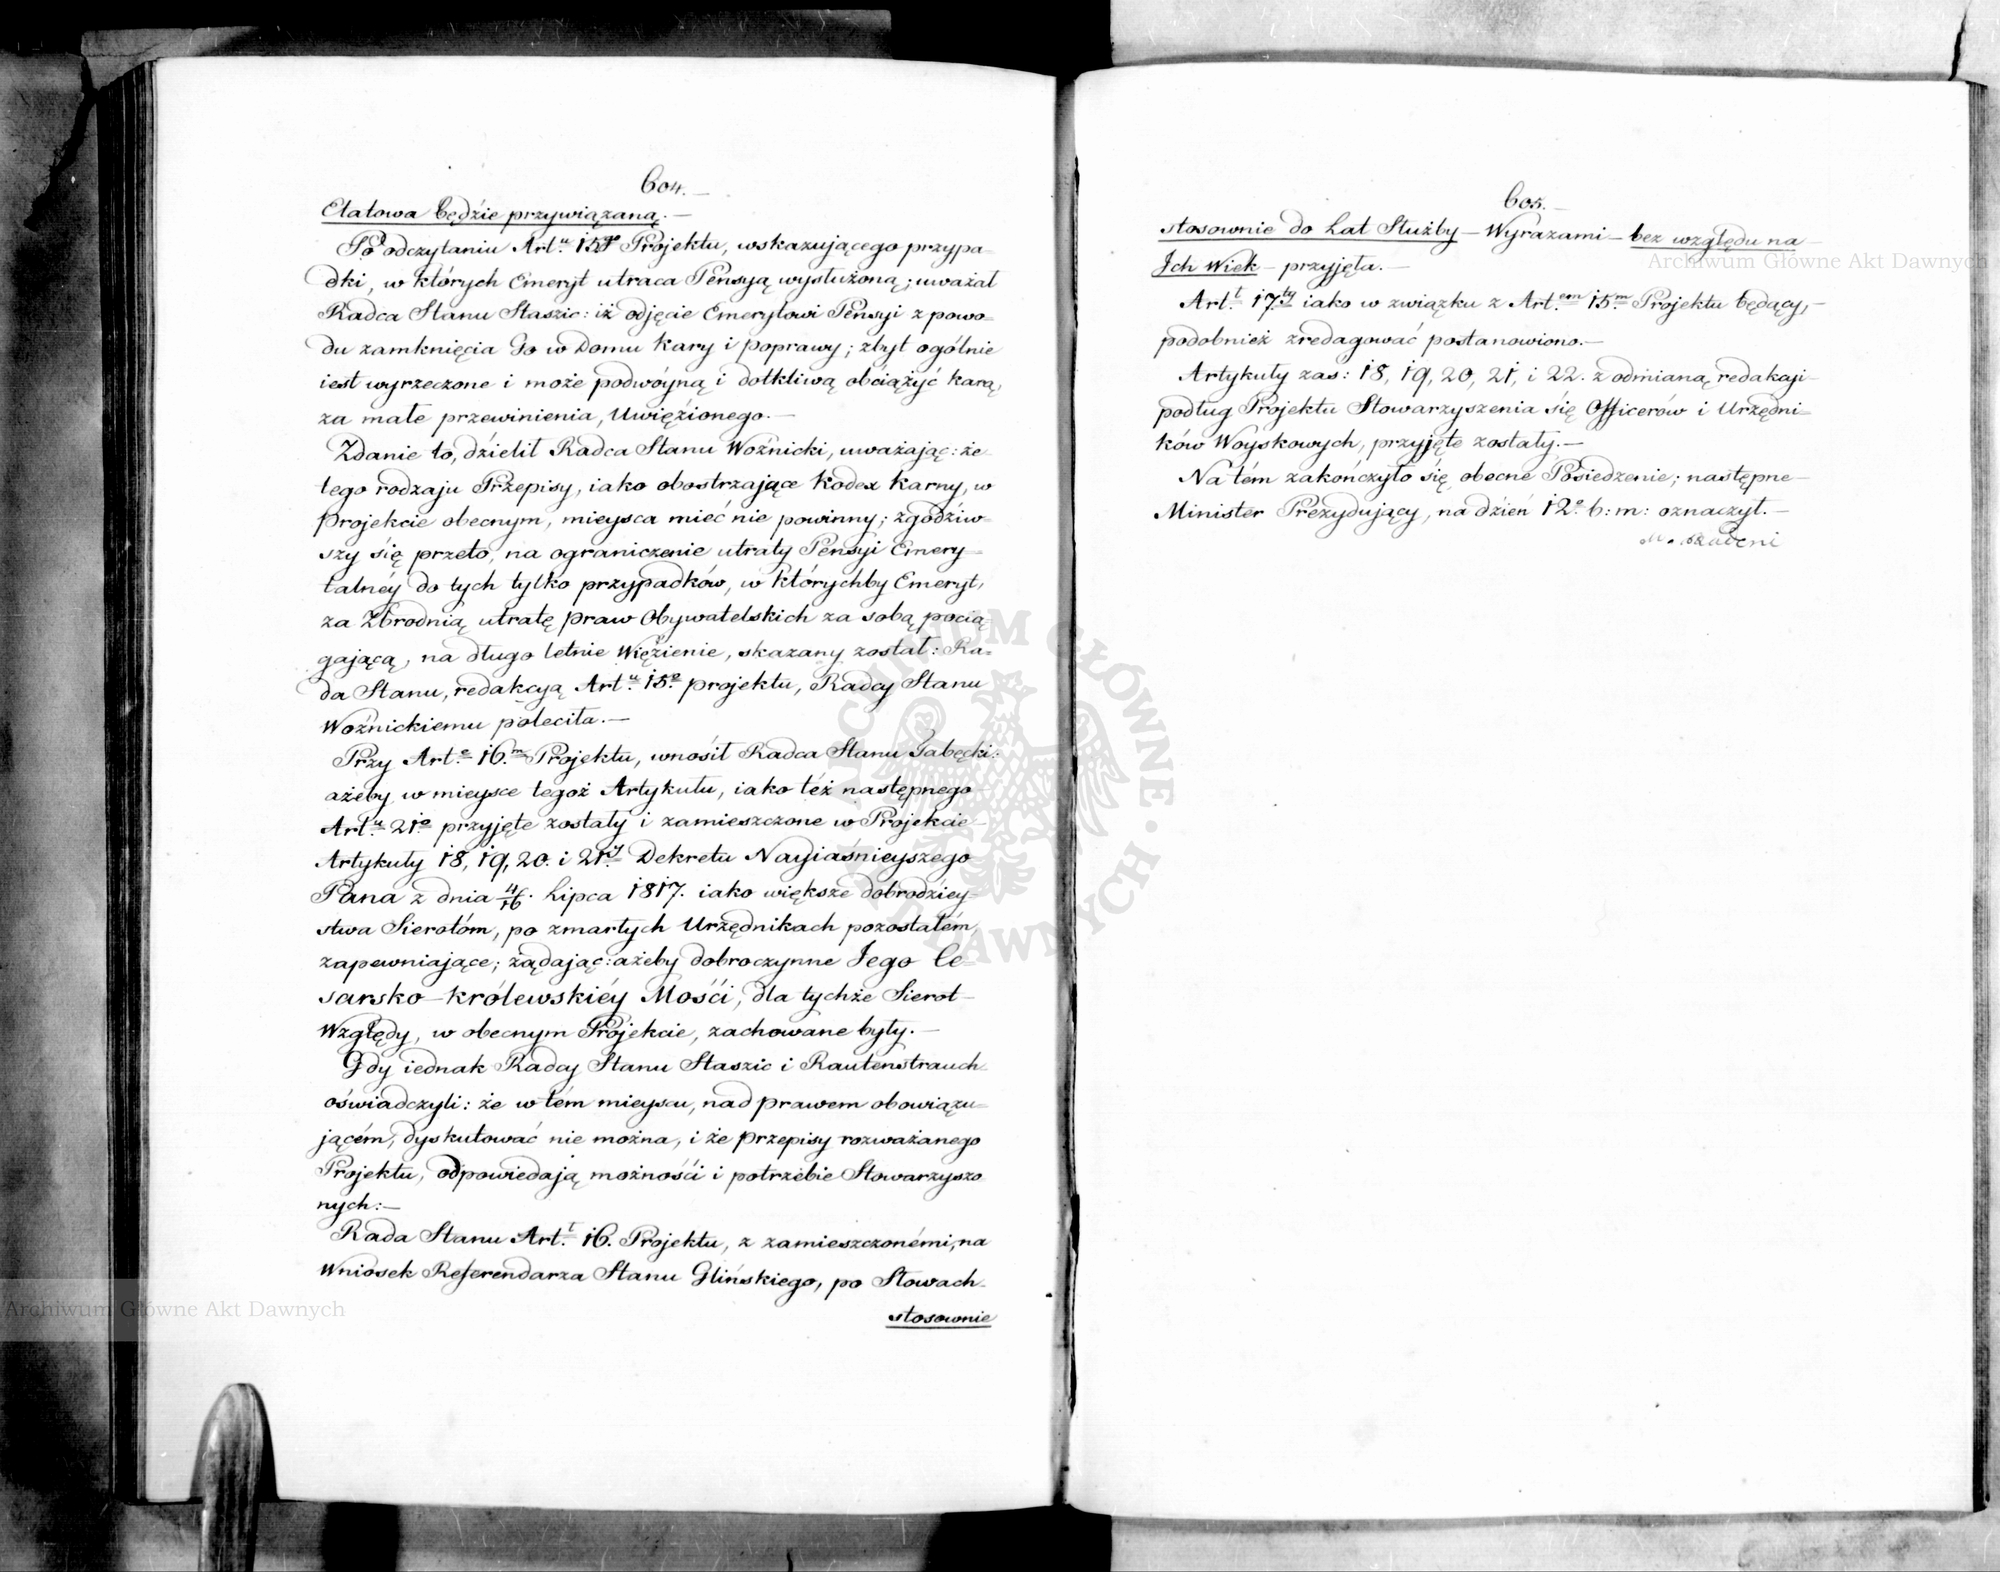 604.—
Etatowa będzie przywiązaną.—
Po odczytaniu Art.u 15go Projektu, wskazującego przypa=
dki, w których Emeryt utraca Pensyą wysłużoną; uważał
Radca Stanu Staszic: iż odjęcie Emerytowi Pensyi z powo=
du zamknięcia Go w Domu Kary i poprawy; zbyt ogólnie
iest wyrzeczone i może podwóyną i dotkliwą obciążyć karą,
za małe przewinienia, Uwięźionego.—
Zdanie to, dzielił Radca Stanu Woźnicki, uważając: że
tego rodzaju Przepisy, iako obostrzające Kodex Karny, w
Projekcie obecnym, mieysca mieć nie powinny; zgodźiw=
szy się przeto, na ograniczenie utraty Pensyi Emery=
talnéy do tych tylko przypadków, w którychby Emeryt,
za Zbrodnią utratę praw Obywatelskich za sobą pocią=
gającą, na długo letnie Więźienie, skazany został: Ra=
da Stanu, redakcyą Art.u 15.o projektu, Radcy Stanu
Woźnickiemu poleciła.—
Przy Art.e 16.m Projektu, wnosił Radca Stanu Gabęcki:
ażeby w mieysce tegoż Artykułu, iako téż następnego
Art.u 21o przyjęte zostały i zamieszczone w Projekcie
Artykuły 18, 19, 20. i 21.y Dekretu Nayiaśnieyszego
Pana z dnia 4/16. Lipca 1817. iako większe dobrodźiey=
stwa Sierotóm, po zmarłych Urzędnikach pozostałém,
zapewniające; żądając: ażeby dobroczynne Jego Ce=
sarsko–Królewskiéy Mośći, dla tychże Sierot—
Względy, w obecnym Projekcie, zachowane były.—
Gdy iednak Radcy Stanu Staszic i Rautenstrauch
oświadczyli: że w tém mieyscu, nad prawem obowiązu=
jącém, dyskutować nie można, i że przepisy rozważanego
Projektu, odpowiedają możnośći i potrzebie Stowarzyszo
nych:—
Rada Stanu Art.t 16. Projektu, z zamieszczonémi, na
Wniosek Referendarza Stanu Glińskiego, po Słowach—
stosownie
605.—
stosownie do Lat Służby — Wyrazami — bez względu na—
Ich Wiek — przyjęła.—
Art.t 17.ty iako w związku z Art.em 15.m Projektu będący,—
podobnież zredagować postanowiono.—
Artykuły zas: 18, 19, 20, 21, i 22. z odmianą redakcji—
podług Projektu Stowarzyszenia się Officerów i Urzędni=
ków Woyskowych, przyjęte zostały.—
Na tém zakończyło się obecne Posiedzenie; następne—
Minister Prezydujący, na dźień 12o b: m: oznaczył.—
M. Badeni
Archiwum Główne Akt Dawnych
Archiwum Główne Akt Dawnych
ARCHIWUM GŁÓWNE · AKT DAWNYCH ·